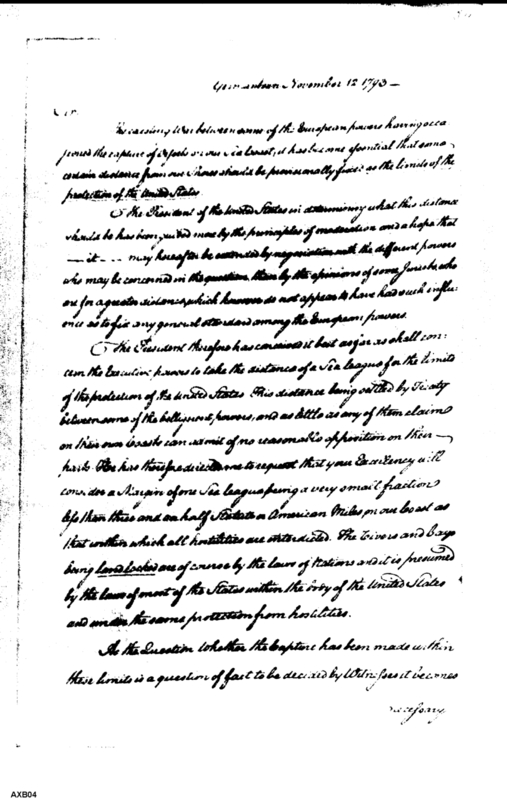 Germantown November 12 1793 —
Sir.
The existing War between some of the European powers having occa
sioned the capture of Vessels on our Sea Coast, it has become essential that some
certain distance from our Shores should be provisionally fixed as the limits of the
protection of the United States.
The President of the United States in determining what this distance
should be has been guided more by the principles of moderation and a hope that
— it - - - may hereafter be extended by negociation with the different powers
who may be concerned in the question, than by the opinions of some Jurists, who
are for a greater distance, which however do not appear to have had such influ-
ence as to fix any general standard among the European powers.
The President therefore has conceived it best as far as shall con-
cern the Executive powers to take the distance of a Sea league for the limits
of the protection of the United States. This distance being settled by Treaty
between some of the belligerent powers, and as little as any of them claim
on their own Coasts can admit of no reasonable opposition on their —
part. He has therefore directed me to request that your Excellency will
consider a Margin of one Sea league being a very small fraction
less than three and an half Statute or American Miles, on our Coast as
that within which all hostilities are interdicted. The Rivers and bays
being land locked are of course by the laws of Nations and it is presumed
by the laws of most of the States within the body of the United States
and under the same protection from hostilities.
As the Question Whether the Capture has been made within
these limits is a question of fact to be decided by Witnesses it becomes
necessary
AXB04